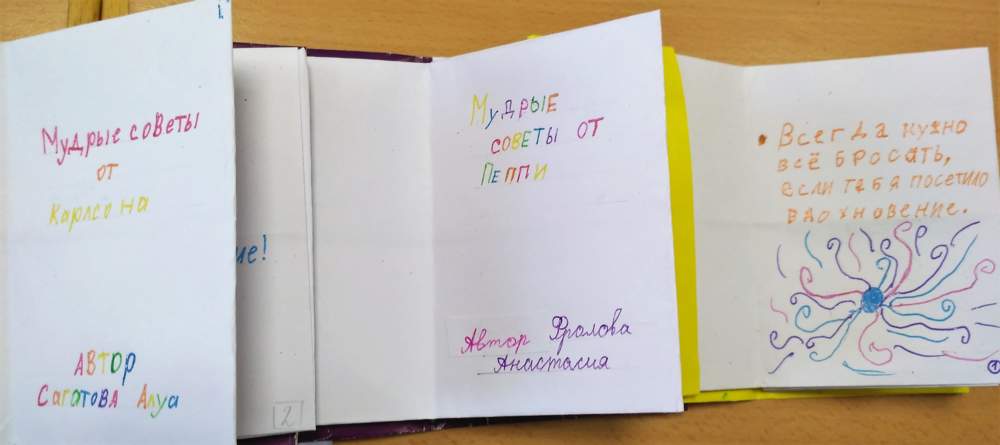 1.
Мудрые советы
от
Карлсона
АВТОР
Сагатова Алуа
ие!
2
Мудрые
советы от
Пеппи
Автор Фролова
Анастасия
Всегда нужно
всё бросать,
если тебя посетило
вдохновение.
1